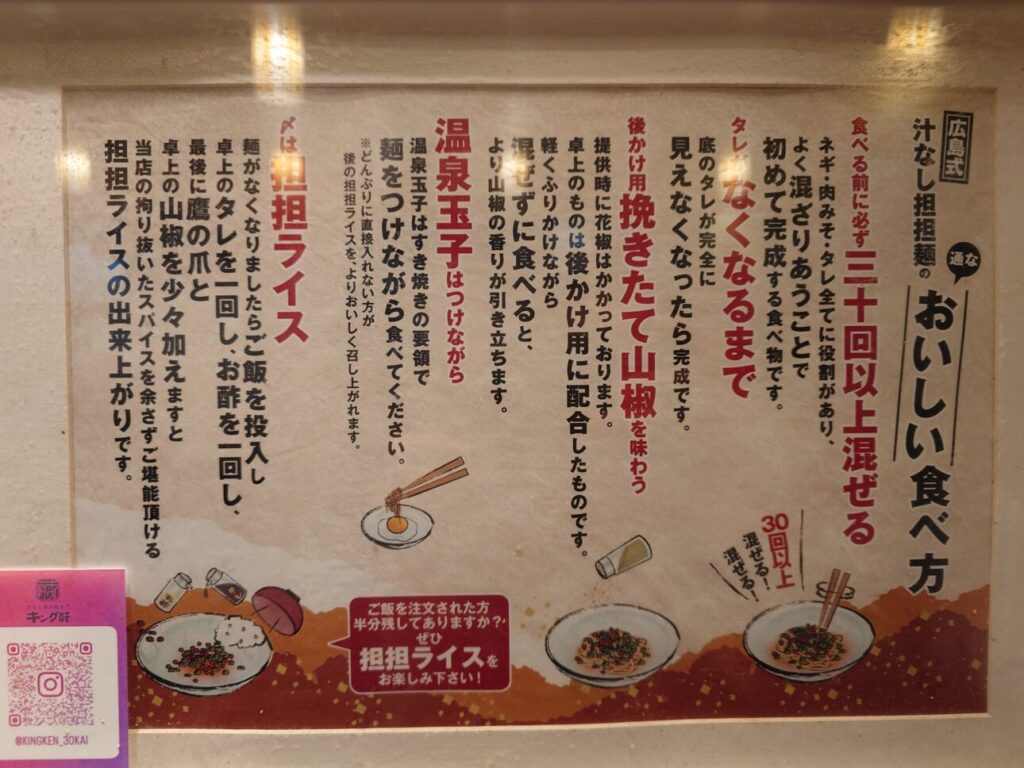 広島式
汁なし担担麺の
通な
おいしい食べ方
食べる前に必ず三十回以上混ぜる
ネギ・肉みそ・タレ全てに役割があり、
よく混ざりあうことで
初めて完成する食べ物です。
タレがなくなるまで
底のタレが完全に
見えなくなったら完成です。
後かけ用挽きたて山椒を味わう
提供時に花椒はかかっております。
卓上のものは後かけ用に配合したものです。
軽くふりかけながら
混ぜずに食べると、
より山椒の香りが引き立ちます。
温泉玉子はつけながら
温泉玉子はすき焼きの要領で
麺をつけながら食べてください。
※どんぶりに直接入れない方が
後の担担ライスを、よりおいしく召し上がれます。
〆は担担ライス
麺がなくなりましたらご飯を投入し
卓上のタレを一回し、お酢を一回し、
最後に鷹の爪と
卓上の山椒を少々加えますと
当店の拘り抜いたスパイスを余さずご堪能頂ける
担担ライスの出来上がりです。
30回以上
混ぜる!
混ぜる!
ご飯を注文された方
半分残してありますか?
ぜひ
担担ライスを
お楽しみ下さい!
キング軒
@KINGKEN_30KAI